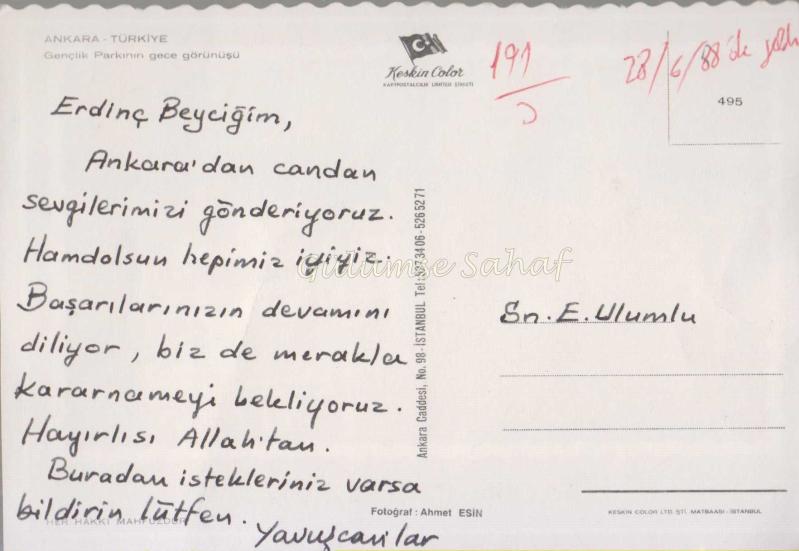 ANKARA - TÜRKİYE
Gençlik Parkının gece görünüşü
Keskin Color
KARTPOSTALCILIK LİMİTED ŞİRKETİ
191
28/6/88'de
495
Erdinç Beyciğim,
Ankara'dan candan
sevgilerimizi gönderiyoruz.
Hamdolsun hepimiz iyiyiz.
Başarılarınızın devamını
diliyor, biz de merakla
kararnameyi bekliyoruz.
Hayırlısı Allah'tan.
Buradan istekleriniz varsa
bildirin lütfen.
Yavuşcanlar
HER HAKKI MAHFUZDUR
Ankara Caddesi, No. 98-İSTANBUL Tel: 527 34 06 - 526 52 71
Sahaf
Sn. E. Ulumlu
Fotoğraf: Ahmet ESİN
KESKİN COLOR LTD. ŞTİ. MATBAASI - İSTANBUL